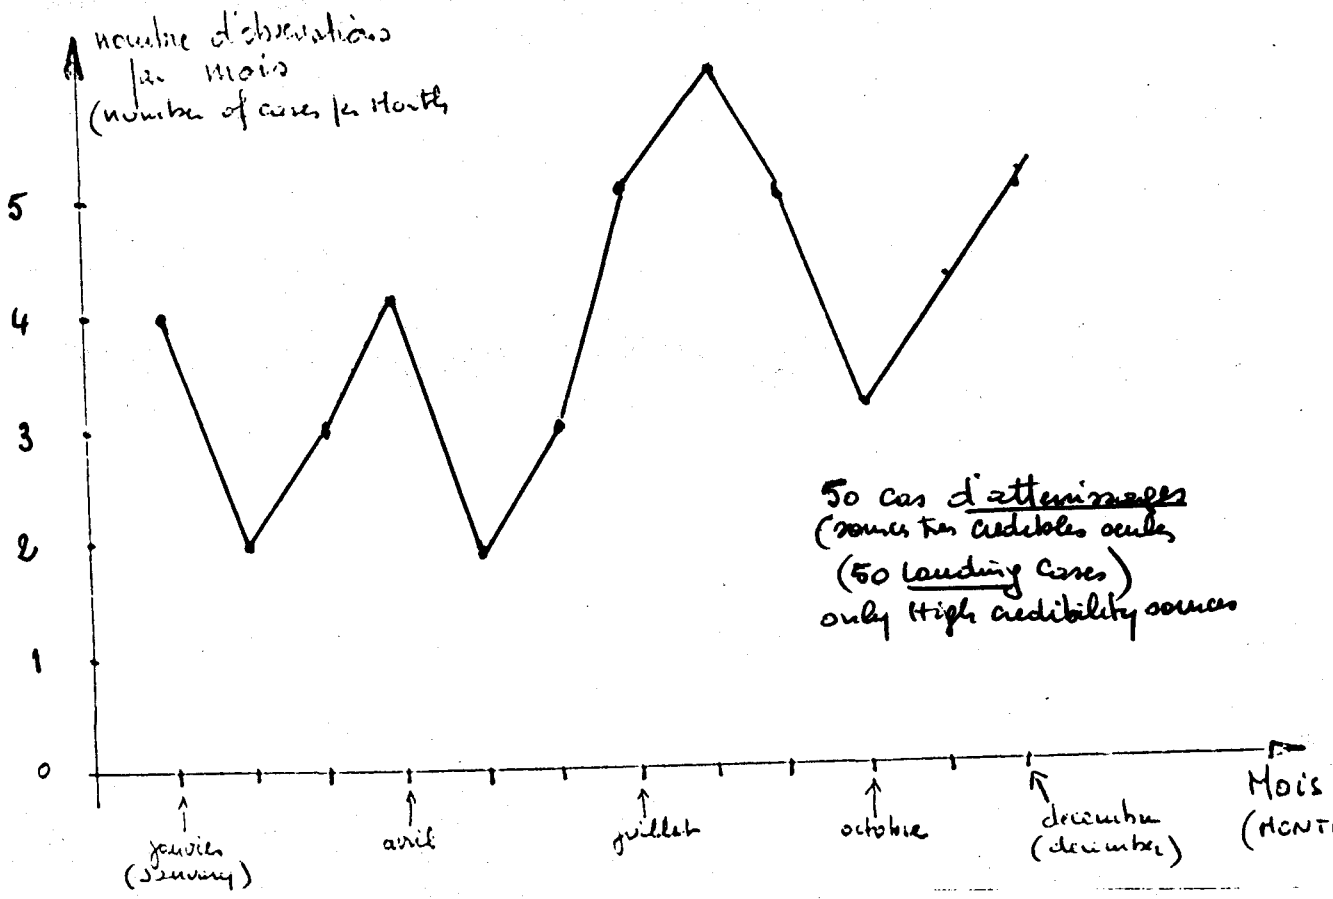 nombre d'observations
par mois
(number of cases per Month
5
4
3
2
1
0
50 cas d'atterrissages
(sources très credibles seules
(50 landing cases)
only High credibility sources
janvier
(January)
avril
juillet
octobre
decembre
(december)
Mois
(MONT